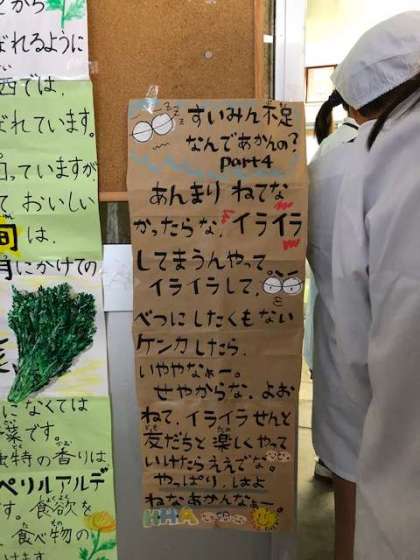 すいみん不足
なんであかんの?
part4
あんまり ねてな
かったらな、イライラ
してまうんやって
イライラして、
べつにしたくもない
ケンカしたら、
いややなぁー。
せやからな、よお
ねて、イライラせんと
友だちと楽しくやって
いけたらええでな。
やっぱり、はよ
ねなあかんなぁー。
から
ばれるように
西では、
ばれています。
っていますが
て おいしい
旬 は、
月にかけての
になくては
菜です。
独特の香りは
ペリルアルデ
す。食欲を
食べ物の